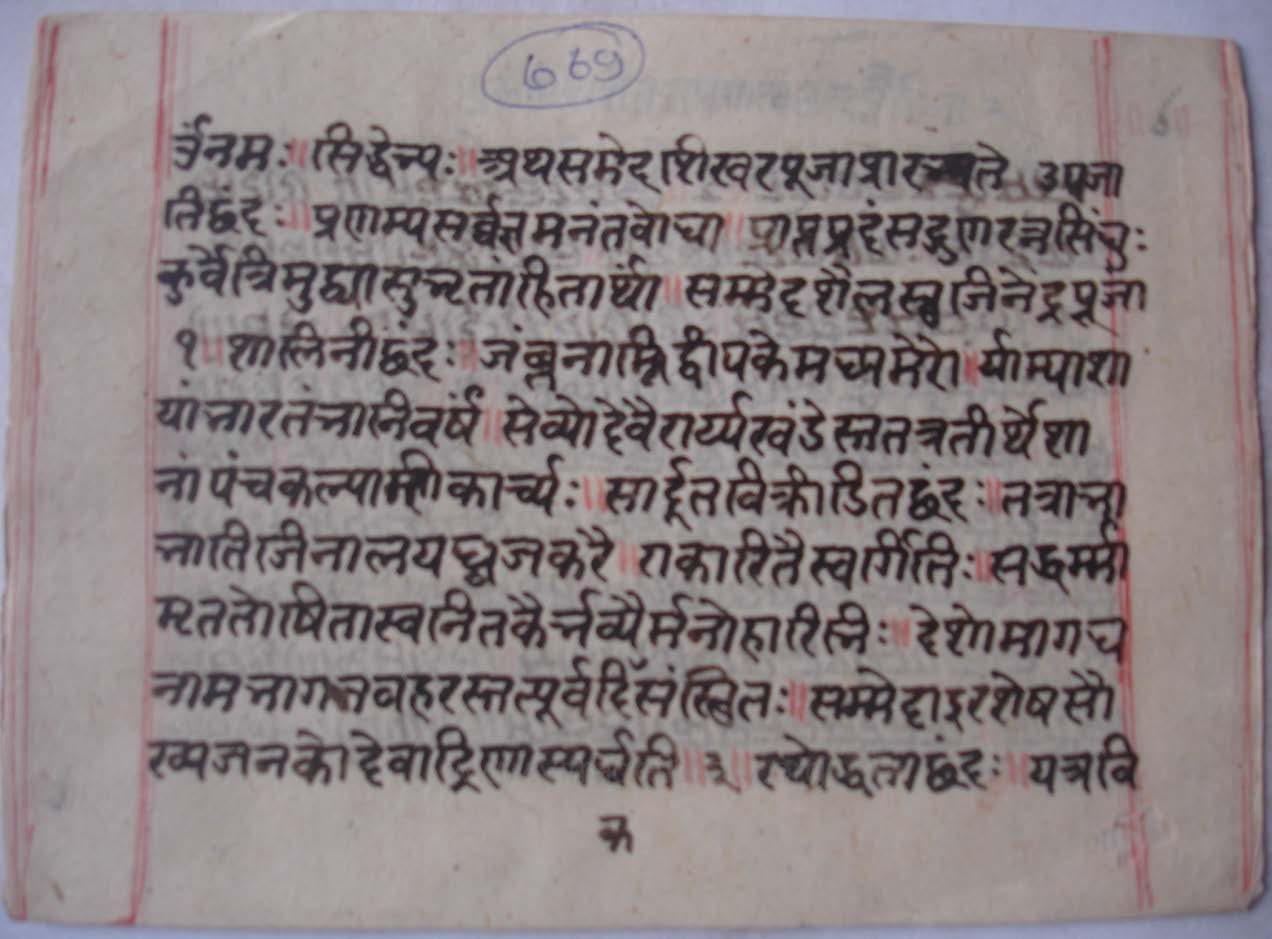 669
ॐनमः॥सिद्धेभ्यः॥अथसमेदशिखरपूजाप्रारभ्यते उपजा
तिछंदः॥प्रणम्यसर्वज्ञमनंतबोधा॥प्राप्तप्रदंसद्गुणरत्नसिंधुः
कुर्वेत्रिमुद्ध्यासुभृतांहितार्था॥सम्मेदशैलस्तुजिनेंद्रपूजां
१॥शालिनीछंदः॥जंबूनाम्निद्वीपकेमध्यमेरो॥र्याम्याशा
यांभारतंभातिवर्षं॥सेव्योदेवैरार्य्यखंडेस्ततत्रतीर्थेशा
नांपंचकल्याणकार्च्यः॥सार्दूलविक्रीडितछंदः॥तत्राभू
भातिजिनालयध्वजकरै॥राकारितैस्वर्गितिः॥सद्धर्म्मा
मृततोषितास्वनितकैर्भव्यैर्मनोहारिभिः॥देशोमागध
नामभागभवहरस्तत्पूर्वदिसंस्थितः॥सम्मेदाद्रिरशेषसौ
ख्यजनकोदेवाद्रिणस्पर्धति॥३॥रथोद्धताछंदः॥यत्रवि
क